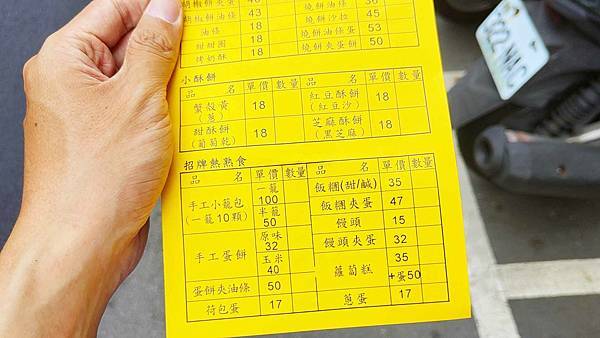 胡椒餅夾蛋
胡椒餅油條 43 燒餅沙拉 45
油條 18 燒餅油條蛋 53
甜甜圈 18 燒餅夾蛋餅 50
烤奶酥 18
小酥餅
品 名 單價 數量 品 名 單價 數量
蟹殼黃(蔥) 18 紅豆酥餅(紅豆沙) 18
甜酥餅(葡萄乾) 18 芝麻酥餅(黑芝麻) 18
招牌熱熟食
品 名 單價 數量 品 名 單價 數量
手工小籠包(一籠10顆) 一籠100 飯糰(甜/鹹) 35
半籠50 飯糰夾蛋 47
手工蛋餅 原味32 饅頭 15
玉米40 饅頭夾蛋 32
蛋餅夾油條 50 蘿蔔糕 35 +蛋50
荷包蛋 17 蔥蛋 17
322 NAC